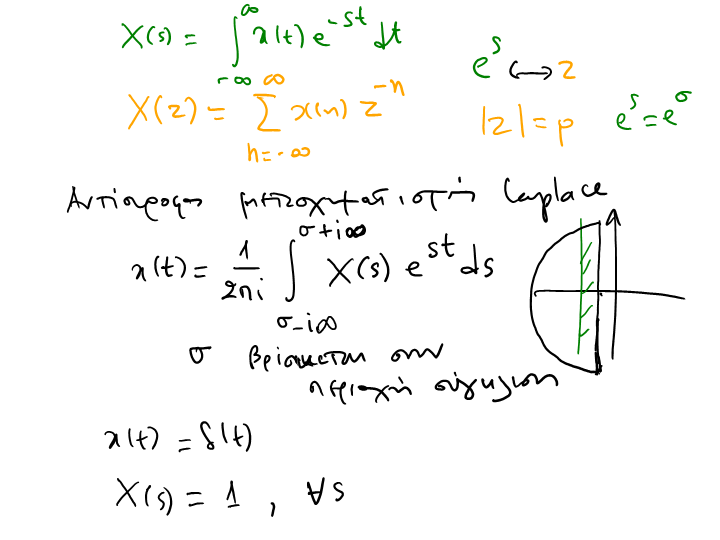 X(s) = ∫_{-∞}^{∞} x(t) e^{-st} dt
e^s ↔ z
X(z) = ∑_{n=-∞}^{∞} x(n) z^{-n}
|z| = ρ   e^s = e^σ
Αντίστροφος μετασχηματισμός Laplace
x(t) = \frac{1}{2πi} ∫_{σ-i∞}^{σ+i∞} X(s) e^{st} ds
σ βρίσκεται στην
περιοχή σύγκλισης
x(t) = δ(t)
X(s) = 1 , ∀s